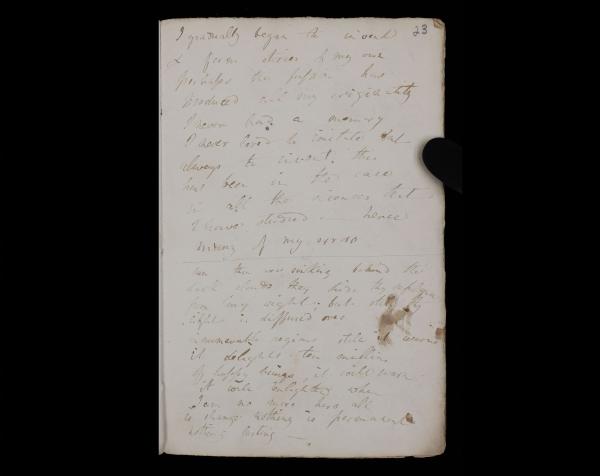 23
I gradually began to invent
& form stories of my own
perhaps this passion has
produced all my originality
I never had a memory
I never loved to imitate but
always to invent, this
has been in the case
in all the sciences that
I have studied — hence
many of my errors
sun thou art sinking behind the
dark clouds they hide thy
from my sight; but still thy
light is diffused over
innumerable regions still it
it delights ten million
of happy beings, it will warm
it will enlighten when
I am no more here all
is change nothing is permanent
nothing lasting —